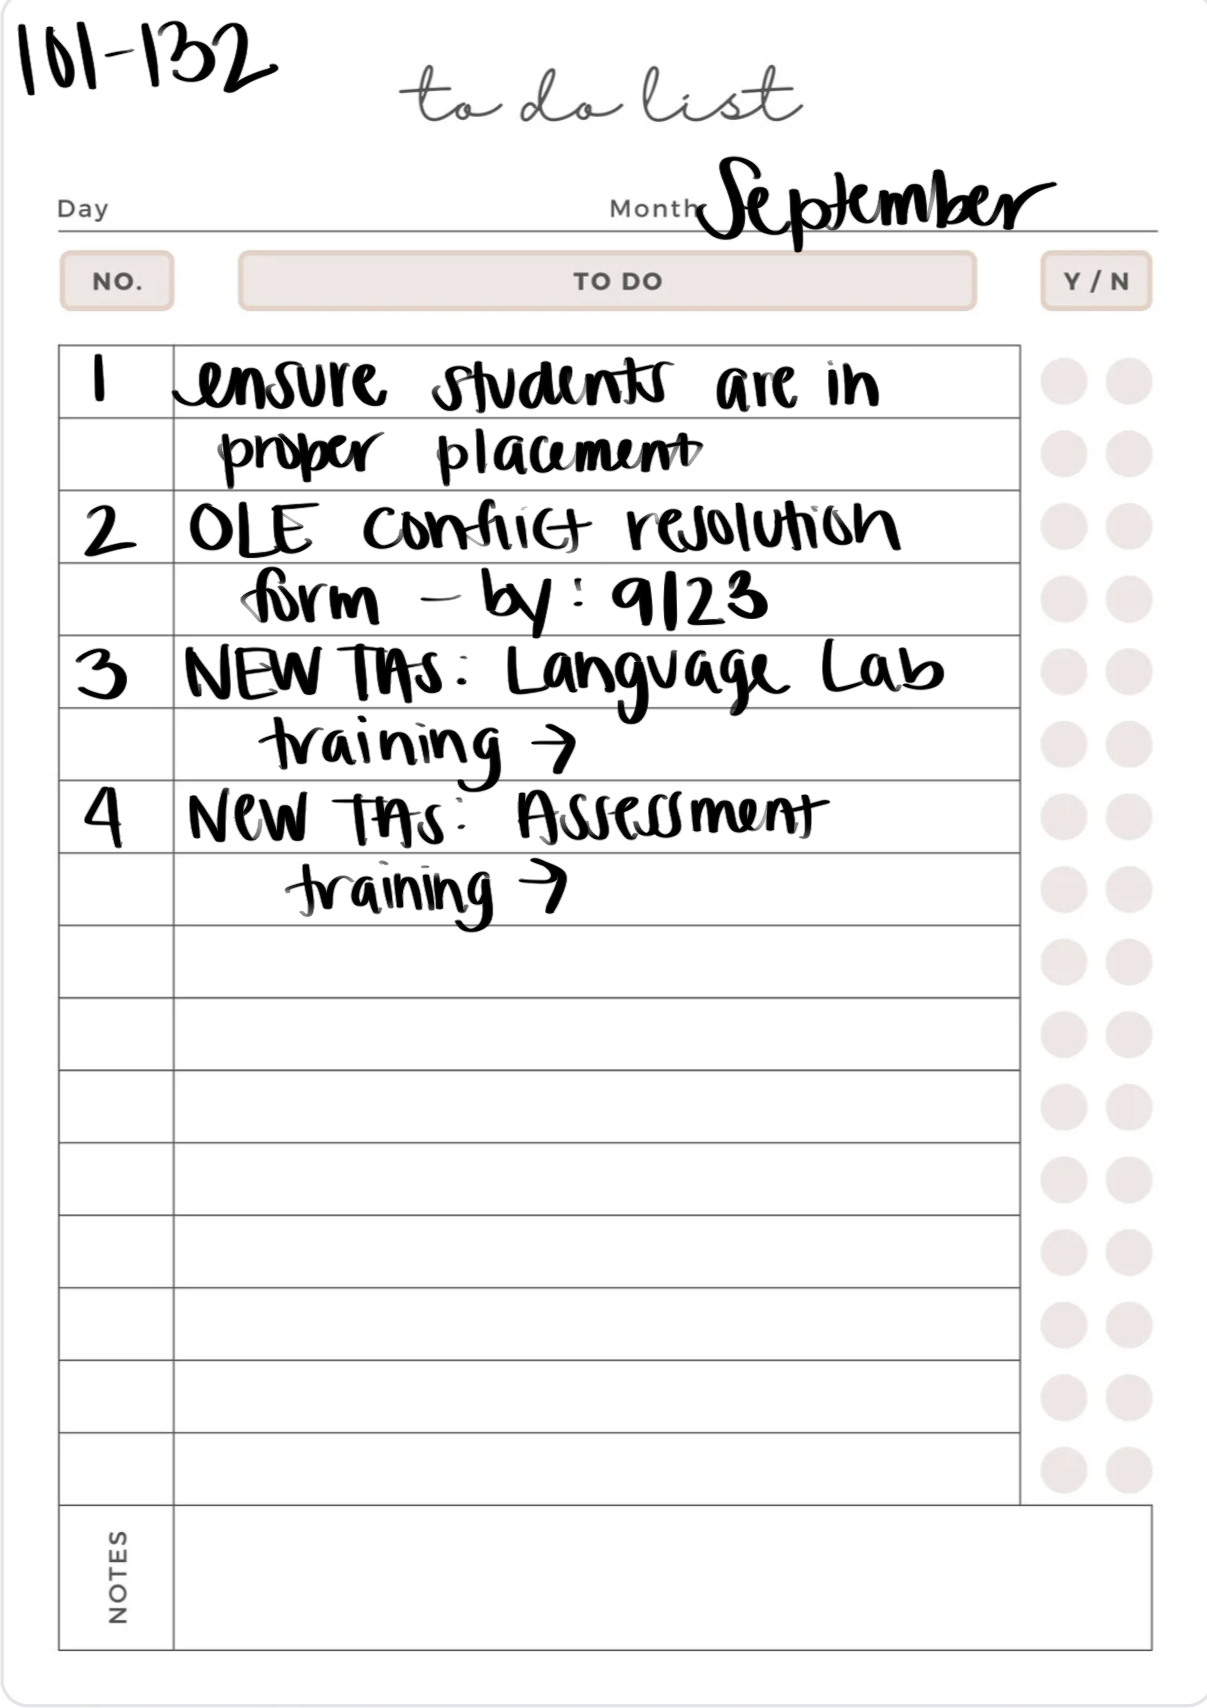 101-132
to do list
Day Month September
NO. TO DO Y / N
1 ensure students are in
proper placement
2 OLE conflict resolution
form - by: 9/23
3 NEW TAs: Language Lab
training →
4 New TAs: Assessment
training →
NOTES